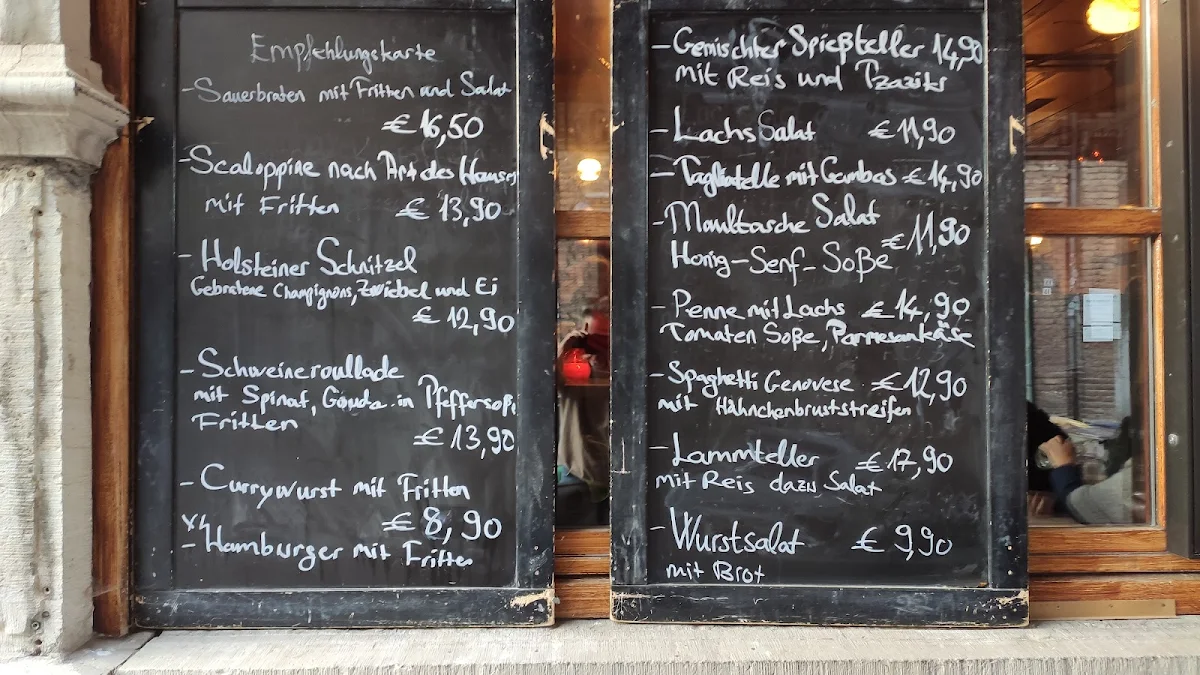 Empfehlungskarte
- Sauerbraten mit Fritten und Salat
€ 16,50
- Scaloppine nach Art des Hauses
mit Fritten € 13,90
- Holsteiner Schnitzel
Gebratene Champignons, Zwiebel und Ei
€ 12,90
- Schweineroullade
mit Spinat, Gouda in Pfeffersoß
Fritten
€ 13,90
- Currywurst mit Fritten
€ 8,90
- Hamburger mit Fritten
- Gemischter Spießteller 14,90
mit Reis und Tzaziki
- Lachs Salat € 11,90
- Tagliatelle mit Gambas € 14,90
- Maultasche Salat
€ 11,90
Honig-Senf-Soße
- Penne mit Lachs € 14,90
Tomaten Soße, Parmesankäse
- Spaghetti Genovese € 12,90
mit Hähnchenbruststreifen
- Lammteller € 17,90
mit Reis dazu Salat
- Wurstsalat € 9,90
mit Brot